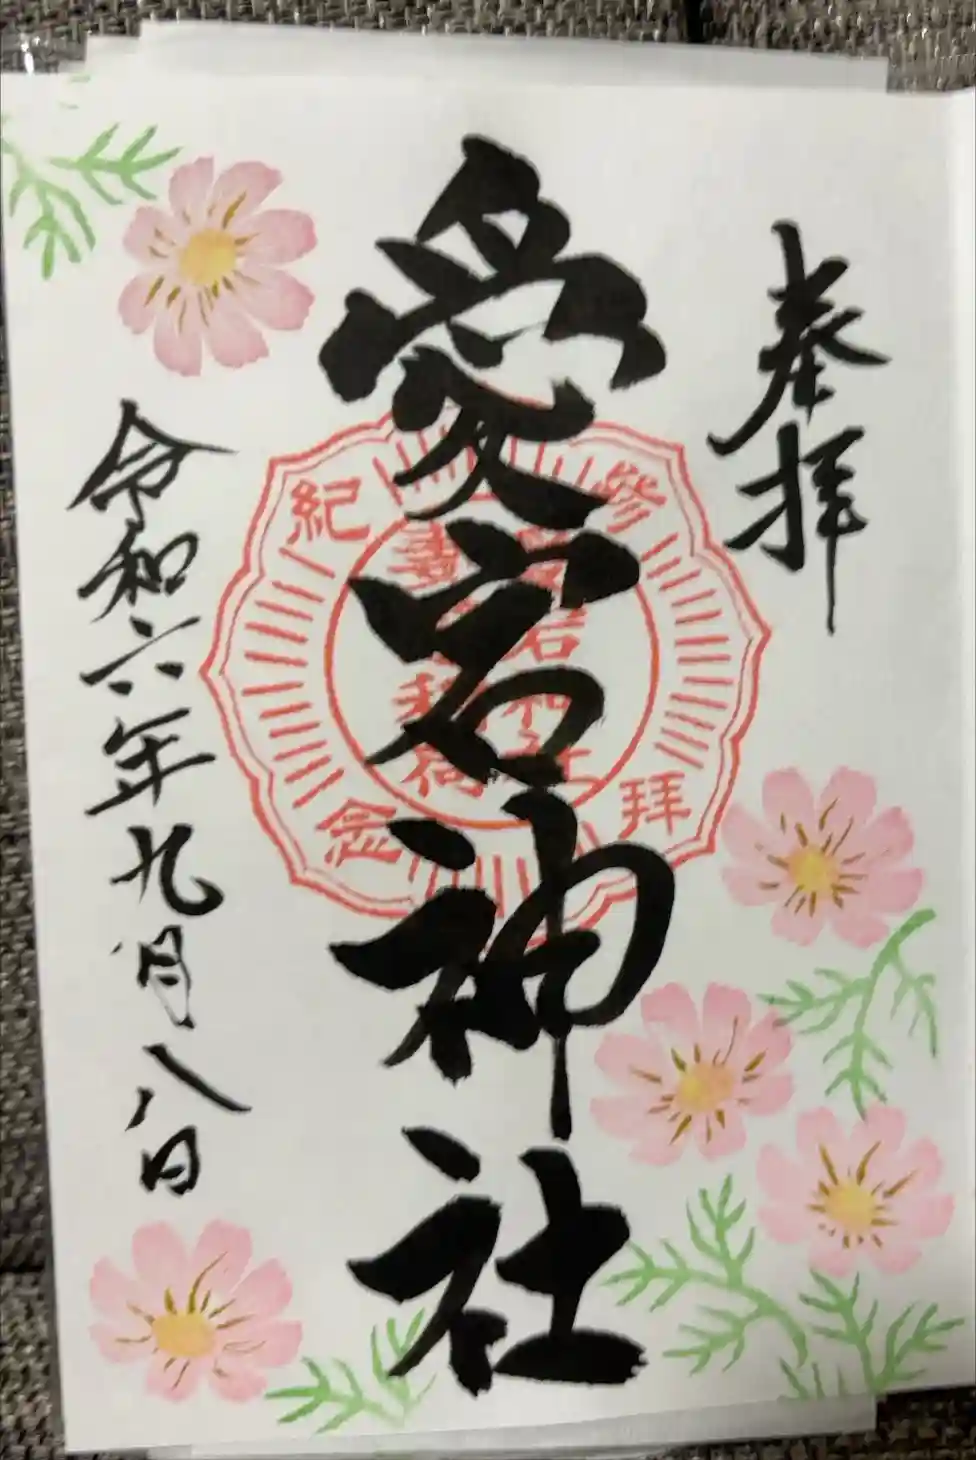 奉拝
愛宕神社
参拝
紀念
令和六年九月八日